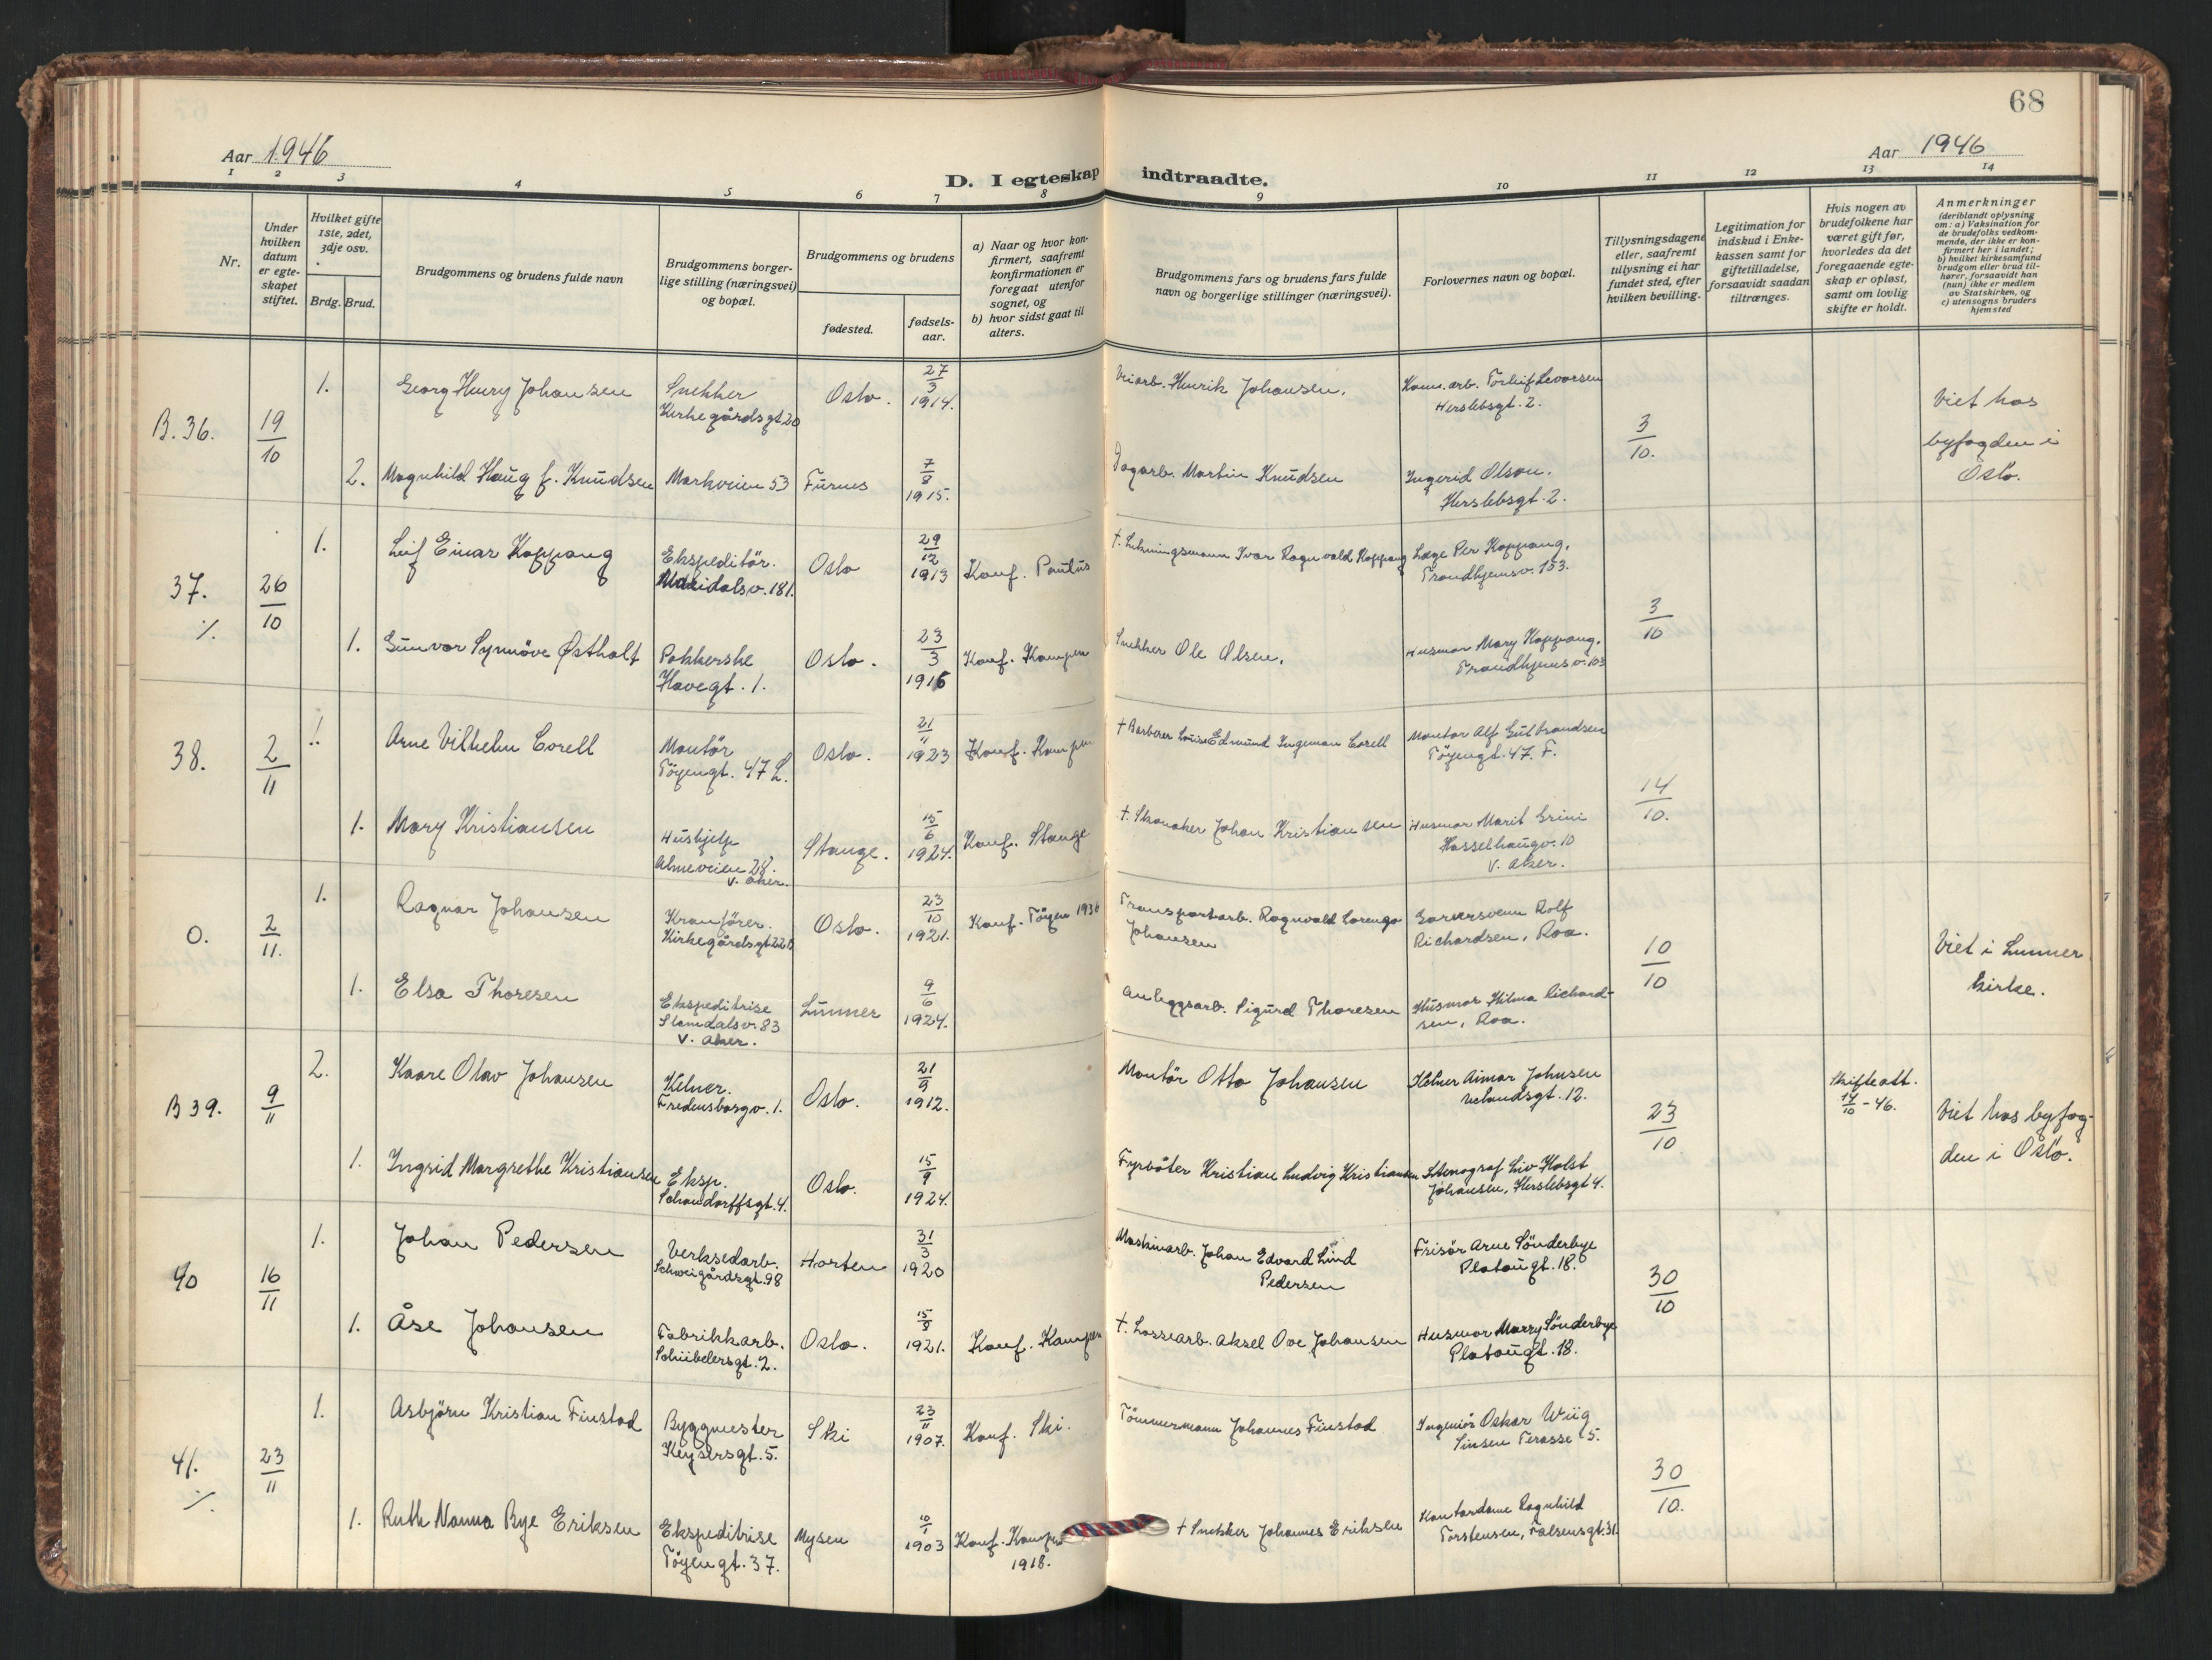 68
Aar 1946
Aar 1946
D. I egteskap indtraadte.
1 2 3 4 5 6 7 8 9 10 11 12 13 14
Nr.
Under hvilken datum er egteskapet stiftet.
Hvilket gifte 1ste, 2det, 3dje osv.
Brdg. Brud.
Brudgommens og brudens fulde navn
Brudgommens borgerlige stilling (næringsvei) og bopæl.
Brudgommens og brudens
fødested.
fødselsaar.
a) Naar og hvor konfirmert, saafremt konfirmationen er foregaat utenfor sognet, og
b) hvor sidst gaat til alters.
Brudgommens fars og brudens fars fulde navn og borgerlige stillinger (næringsvei).
Forlovernes navn og bopæl.
Tillysningsdagene eller, saafremt tillysning ei har fundet sted, efter hvilken bevilling.
Legitimation for indskud i Enkekassen samt for giftetilladelse, forsaavidt saadan tiltrænges.
Hvis nogen av brudefolkene har været gift før, hvorledes da det foregaaende egteskap er opløst, samt om lovlig skifte er holdt.
Anmerkninger (deriblandt oplysning om: a) Vaksination for de brudefolks vedkommende, der ikke er konfirmert her i landet; b) hvilket kirkesamfund brudgom eller brud tilhører, forsaavidt han (hun) ikke er medlem av Statskirken, og c) utensogns bruders hjemsted
B. 36. 19/10
1. Georg Henry Johansen Snekker Kirkegårdsgt 20 Oslo. 27/3 1914. Veiarb. Henrik Johansen. Kom. arb. Torleif Levorsen Herslebsgt. 2.
3/10. Viet hos byfogden i Oslo.
2. Magnhild Haug f. Knudsen Markveien 53 Furnes 7/8 1915. Dagarb. Martin Knudsen Ingerid Olsen. Herslebsgt. 2.
37. 26/10
1. Leif Einar Koppang Ekspeditör. Maridalsv. 181. Oslo 29/12 1913 Konf. Paulus †. Likningsmann Ivar Ragnvald Koppang Læge Per Koppang, Trondhjemsv. 153.
3/10
1. Gunvor Synnöve Østholt Pakkerske Havegt. 1. Oslo. 23/3 1916 Konf. Kampen Snekker Ole Olsen. Husmor Mary Koppang. Trondhjemsv. 153
38. 2/11
1. Arne Vilhelm Corell Montör Töyengt. 47 L. Oslo. 21/11 1923 Konf. Kampen † Barberer Louis Edmund Ingeman Corell Montor Alf Gulbrandsen Töyengt. 47. F.
14/10.
1. Mary Kristiansen Hushjelp Almeveien 28. V. Aker. Stange. 15/6 1924. Konf. Stange †. Skomaker Johan Kristiansen Husmor Marit Grini Hasselhaugv. 10 V. Aker.
0. 2/11.
1. Ragnar Johansen Kranförer. Kirkegårdsgt 22 b Oslo. 23/10 1921. Konf. Töyen 1936 Transportarb. Ragnvald Lorengo Johansen Garversvenn Rolf Richardsen, Roa.
10/10 Viet i Lunner kirke.
1. Elsa Thoresen Ekspeditrise Slemdalsv. 83 V. Aker. Lunner 9/6 1924. Anleggsarb. Sigurd Thoresen Husmor Hilma Richardsen, Roa.
B 39. 9/11
2. Kaare Olav Johansen Kelner. Fredensborgv. 1. Oslo. 21/9 1912. Montör Otto Johansen Kelner Aimar Johnsen Uelandsgt. 12.
23/10 Skifteatt. 14/10 - 46. Viet hos byfogden i Oslo.
1. Ingrid Margrethe Kristiansen Eksp. Schandorffsgt. 4. Oslo. 15/9 1924. Fyrböter Kristian Ludvig Kristiansen Stenograf Liv Holst Johansen, Herslebsgt 4.
40 16/11
1. Johan Pedersen Verkstedarb. Schweigårdsgt. 98 Horten 31/3 1920 Maskinarb. Johan Edvard Lind Pedersen Frisör Arne Sönderbye Platougt. 18.
30/10
1. Åse Johansen Fabrikkarb. Schübelersgt. 2. Oslo. 15/8 1921. Konf. Kampen †. Lossearb. Aksel Ove Johansen Husmor Marry Sönderbye Platougt. 18.
41. 23/11
1. Asbjörn Kristian Finstad Byggmester Keysersgt. 5. Ski 23/11 1907. Konf. Ski. Tömmermann Johannes Finstad Ingeniör Oskar Wiig Sinsen Terasse 5.
30/10.
1. Ruth Nanna Bye Eriksen Ekspeditrise Töyengt. 37. Mysen 10/1 1903 Konf. Kampen 1918. † Snekker Johannes Eriksen Kontordame Ragnhild Torstensen, Falsensgt. 31.